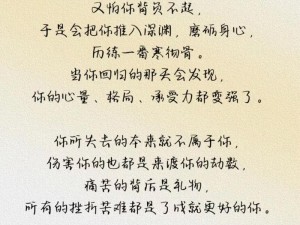 又怕你背负不起，
于是会把你推入深渊，磨砺身心，
历练一番寒彻骨。
当你回归的那天会发现，
你的心量、格局、承受力都变强了。
你所失去的本来就不属于你，
伤害你的也都是来渡你的劫数，
痛苦的背后是礼物，
所有的挫折苦难都是了成就更好的你。